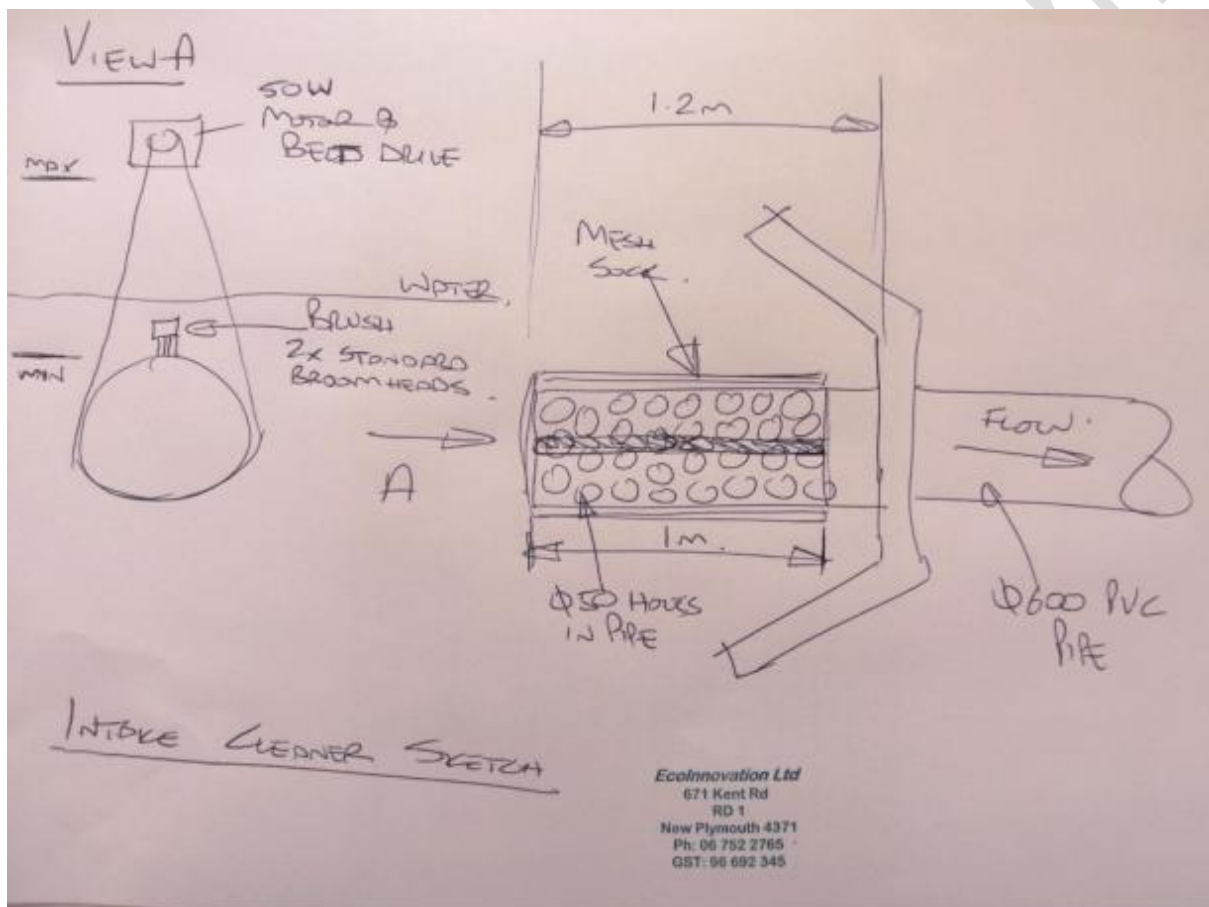 VIEW A
50W
MOTOR &
BELT DRIVE
MAX
WATER.
BRUSH
2x STANDARD
BROOMHEADS.
MIN
A
1.2m
MESH
SOCK.
FLOW.
1m.
Φ50 HOLES
IN PIPE
Φ600 PVC
PIPE
INTAKE CLEANER SKETCH
EcoInnovation Ltd
671 Kent Rd
RD 1
New Plymouth 4371
Ph: 06 752 2765
GST: 96 692 345